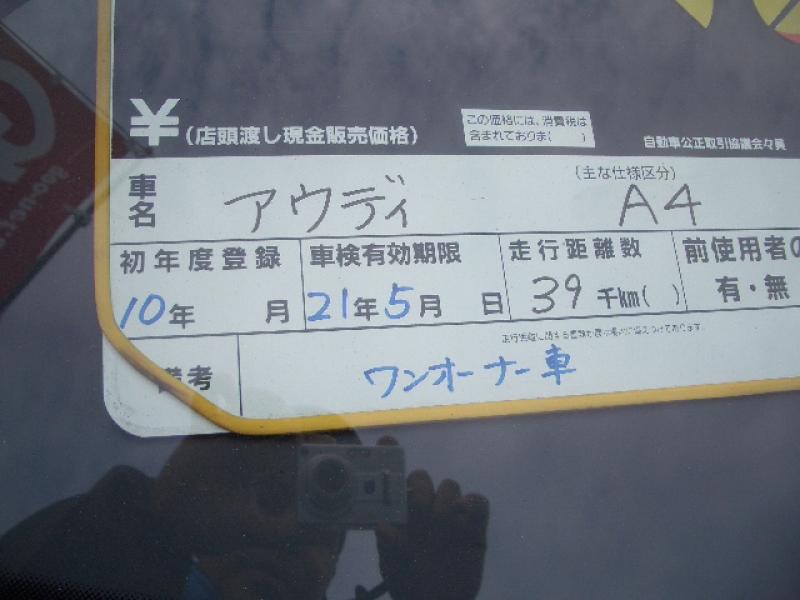 ¥ (店頭渡し現金販売価格)
この価格には、消費税は
含まれておりま( )
自動車公正取引協議会々員
車名 アウディ (主な仕様区分) A4
初年度登録 車検有効期限 走行距離数 前使用者の
10年 月 21年5月 日 39千km( ) 有・無
備考 ワンオーナー車